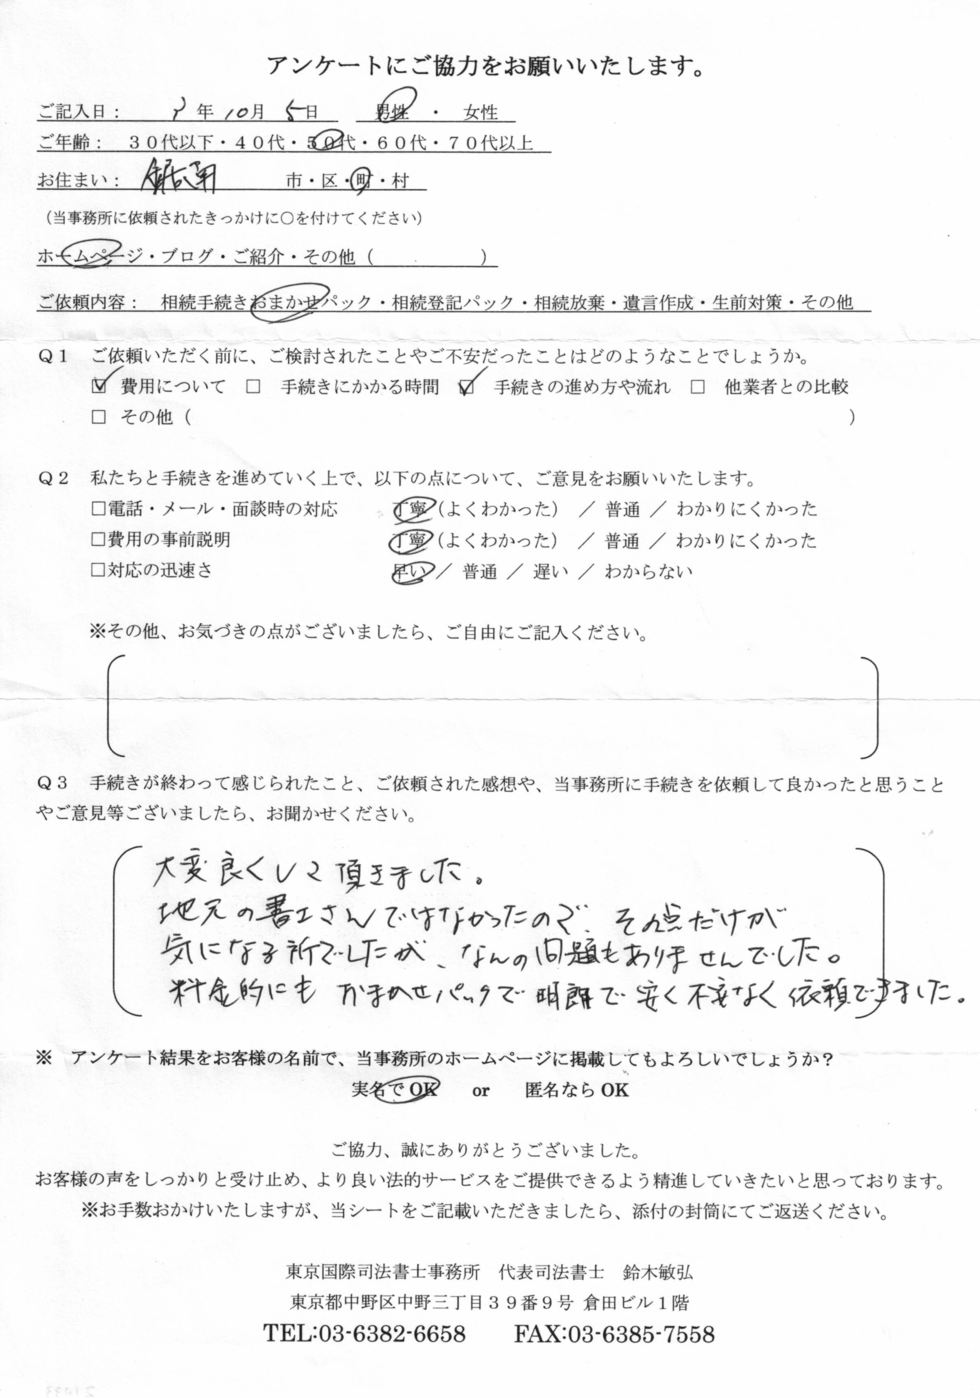 アンケートにご協力をお願いいたします。
ご記入日： 年 10月 5日 男性 ・ 女性
ご年齢： ３０代以下・４０代・５０代・６０代・７０代以上
お住まい： 鋸南 市・区・町・村
（当事務所に依頼されたきっかけに○を付けてください）
ホームページ・ブログ・ご紹介・その他（ ）
ご依頼内容： 相続手続きおまかせパック・相続登記パック・相続放棄・遺言作成・生前対策・その他
Ｑ１ ご依頼いただく前に、ご検討されたことやご不安だったことはどのようなことでしょうか。
☑ 費用について □ 手続きにかかる時間 ☑ 手続きの進め方や流れ □ 他業者との比較
□ その他（ ）
Ｑ２ 私たちと手続きを進めていく上で、以下の点について、ご意見をお願いいたします。
□電話・メール・面談時の対応 丁寧（よくわかった） ／ 普通 ／ わかりにくかった
□費用の事前説明 丁寧（よくわかった） ／ 普通 ／ わかりにくかった
□対応の迅速さ 早い ／ 普通 ／ 遅い ／ わからない
※その他、お気づきの点がございましたら、ご自由にご記入ください。
Ｑ３ 手続きが終わって感じられたこと、ご依頼された感想や、当事務所に手続きを依頼して良かったと思うこと
やご意見等ございましたら、お聞かせください。
大変良くして頂きました。
地元の書士さんではなかったので、その点だけが
気になる所でしたが、なんの問題もありませんでした。
料金的にも おまかせパックで 明朗で 安く 不安なく 依頼できました。
※ アンケート結果をお客様の名前で、当事務所のホームページに掲載してもよろしいでしょうか？
実名でOK or 匿名ならOK
ご協力、誠にありがとうございました。
お客様の声をしっかりと受け止め、より良い法的サービスをご提供できるよう精進していきたいと思っております。
※お手数おかけいたしますが、当シートをご記載いただきましたら、添付の封筒にてご返送ください。
東京国際司法書士事務所 代表司法書士 鈴木敏弘
東京都中野区中野三丁目３９番９号 倉田ビル１階
TEL:03-6382-6658 FAX:03-6385-7558